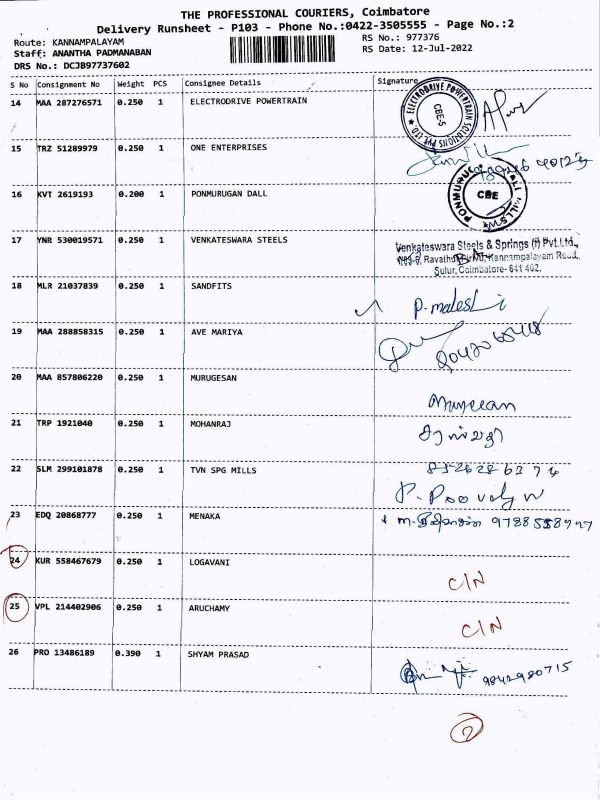 THE PROFESSIONAL COURIERS, Coimbatore
Delivery Runsheet - P103 - Phone No.:0422-3505555 - Page No.:2
Route: KANNAMPALAYAM RS No.: 977376
Staff: ANANTHA PADMANABAN RS Date: 12-Jul-2022
DRS No.: DCJB97737602
S No Consignment No Weight PCS Consignee Details Signature
14 MAA 287276571 0.250 1 ELECTRODRIVE POWERTRAIN
ELECTRODRIVE POWERTRAIN SOLUTIONS PVT LTD. CBE-5
15 TRZ 51289979 0.250 1 ONE ENTERPRISES
16 KVT 2619193 0.200 1 PONMURUGAN DALL
CBE
17 YNR 530019571 0.250 1 VENKATESWARA STEELS
Venkateswara Steels & Springs (I) Pvt.Ltd.,
Kannampalayam Road,
Sulur, Coimbatore- 641 402.
18 MLR 21037839 0.250 1 SANDFITS
19 MAA 288858315 0.250 1 AVE MARIYA
20 MAA 857806220 0.250 1 MURUGESAN
21 TRP 1921040 0.250 1 MOHANRAJ
22 SLM 299101878 0.250 1 TVN SPG MILLS
23 EDQ 20868777 0.250 1 MENAKA
24 KUR 558467679 0.250 1 LOGAVANI C/N
25 VPL 214402906 0.250 1 ARUCHAMY C/N
26 PRO 13486189 0.390 1 SHYAM PRASAD 9842980715
2